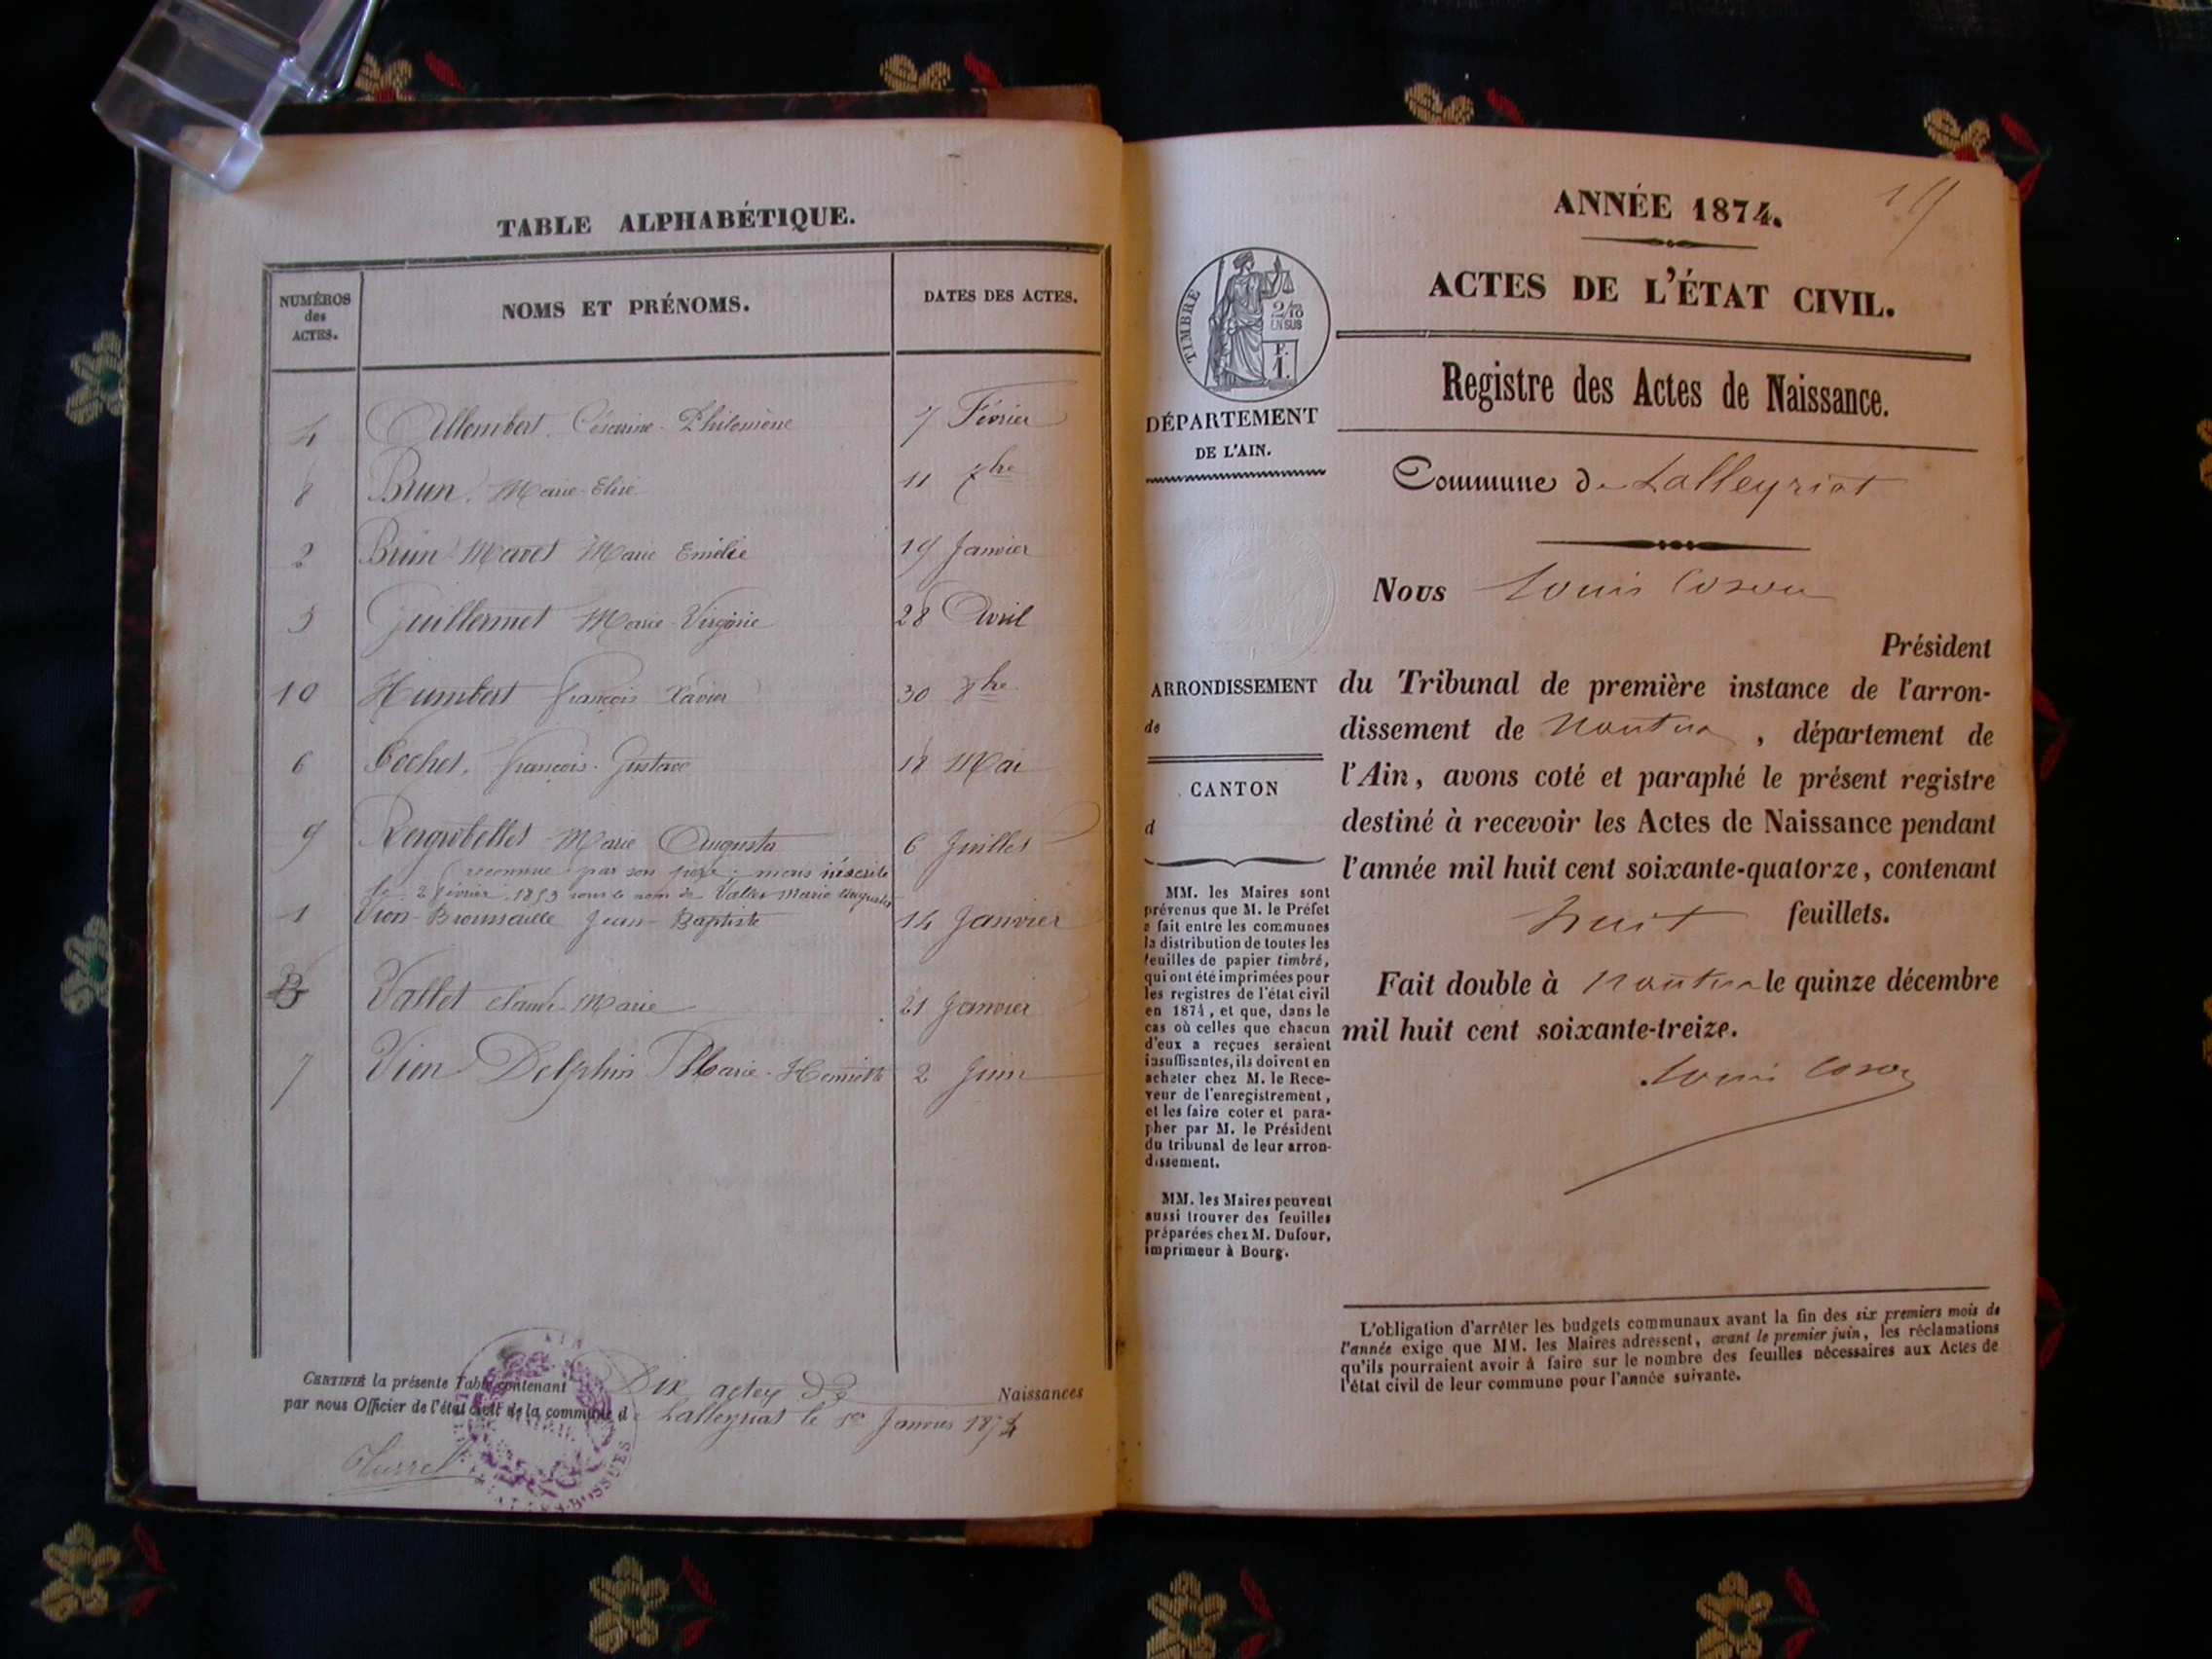 TABLE ALPHABÉTIQUE.
NUMÉROS des ACTES.
NOMS ET PRÉNOMS.
DATES DES ACTES.
4 Allombert Césarine Philomène 7 Février
8 Brun Marie-Elise 11 7bre
2 Brun-Mavet Marie Emélie 19 Janvier
5 Guillermet Marie-Virginie 28 Avril
10 Humbert François Xavier 30 8bre
6 Cochet, François-Gustave 18 Mai
9 Marie Augusta 6 Juillet
reconnue par son père, mais inscrite
le 2 Février 1853 sous le nom de Vallet Marie Augusta
1 Vion-Broussaille Jean-Baptiste 14 Janvier
3 Vallet Claude-Marie 21 Janvier
7 Vion-Delphin Marie-Henriette 2 Juin
CERTIFIÉ la présente Table contenant Dix actes de Naissances
par nous Officier de l'état civil de la commune d e Lalleyriat le 1er Janvier 1874
ANNÉE 1874.
ACTES DE L'ÉTAT CIVIL.
Registre des Actes de Naissance.
TIMBRE
2/10
EN SUS
F.
1.
DÉPARTEMENT
DE L'AIN.
Commune de Lalleyriat
Nous Louis
Président
ARRONDISSEMENT
de
CANTON
d
du Tribunal de première instance de l'arron-
dissement de Nantua, département de
l'Ain, avons coté et paraphé le présent registre
destiné à recevoir les Actes de Naissance pendant
l'année mil huit cent soixante-quatorze, contenant
huit feuillets.
Fait double à Nantua le quinze décembre
mil huit cent soixante-treize.
Louis
MM. les Maires sont
prévenus que M. le Préfet
a fait entre les communes
la distribution de toutes les
feuilles de papier timbré,
qui ont été imprimées pour
les registres de l'état civil
en 1874, et que, dans le
cas où celles que chacun
d'eux a reçues seraient
insuffisantes, ils doivent en
acheter chez M. le Rece-
veur de l'enregistrement,
et les faire coter et para-
pher par M. le Président
du tribunal de leur arron-
dissement.
MM. les Maires peuvent
aussi trouver des feuilles
préparées chez M. Dufour,
imprimeur à Bourg.
L'obligation d'arrêter les budgets communaux avant la fin des six premiers mois de
l'année exige que MM. les Maires adressent, avant le premier juin, les réclamations
qu'ils pourraient avoir à faire sur le nombre des feuilles nécessaires aux Actes de
l'état civil de leur commune pour l'année suivante.